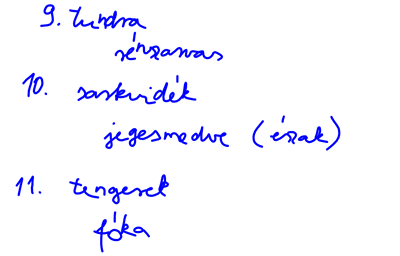 9. tundra
rénszarvas
10. sarkvidék
jegesmedve (észak)
11. tengerek
fóka